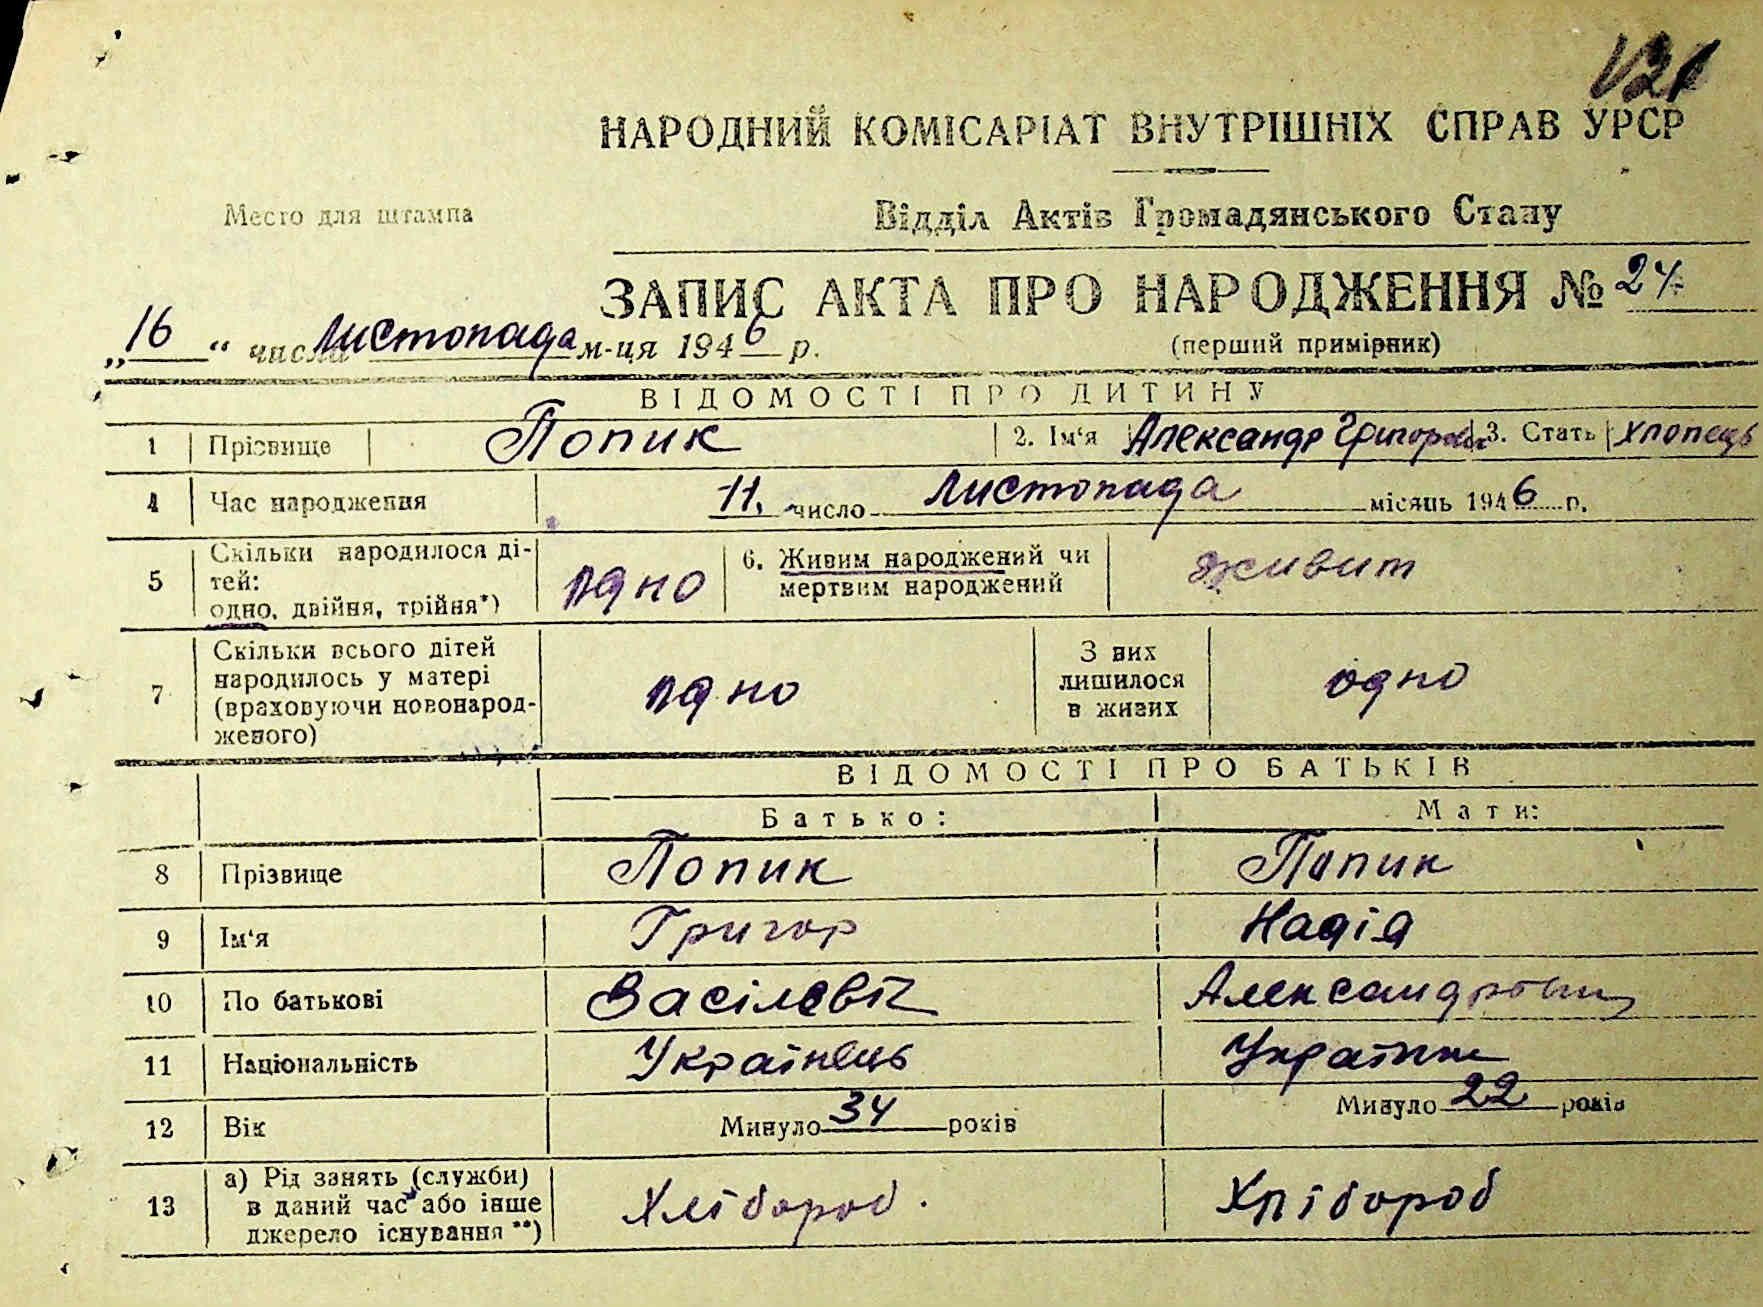 121
НАРОДНИЙ КОМІСАРІАТ ВНУТРІШНІХ СПРАВ УРСР
Место для штампа
Відділ Актів Громадянського Стану
ЗАПИС АКТА ПРО НАРОДЖЕННЯ № 24
„16“ числа Листопада м-ця 1946 р.
(перший примірник)
ВІДОМОСТІ ПРО ДИТИНУ
1 Прізвище Попик 2. Ім'я Александр 3. Стать Хлопець
4 Час народження 11. число Листопада місяць 1946 р.
5 Скільки народилося ді-
тей:
одно, двійня, трійня*)
одно
6. Живим народжений чи
мертвим народжений
7 Скільки всього дітей
народилось у матері
(враховуючи новонарод-
женого)
одно
З них
лишилося
в живих
одно
ВІДОМОСТІ ПРО БАТЬКІВ
Батько: Мати:
8 Прізвище Попик Попик
9 Ім'я Григор Надія
10 По батькові Васілєвіч
11 Національність Українець
12 Вік Минуло 34 років Минуло 22 років
13 а) Рід занять (служби)
в даний час або інше
джерело існування **)
Хлібороб. Хлібороб